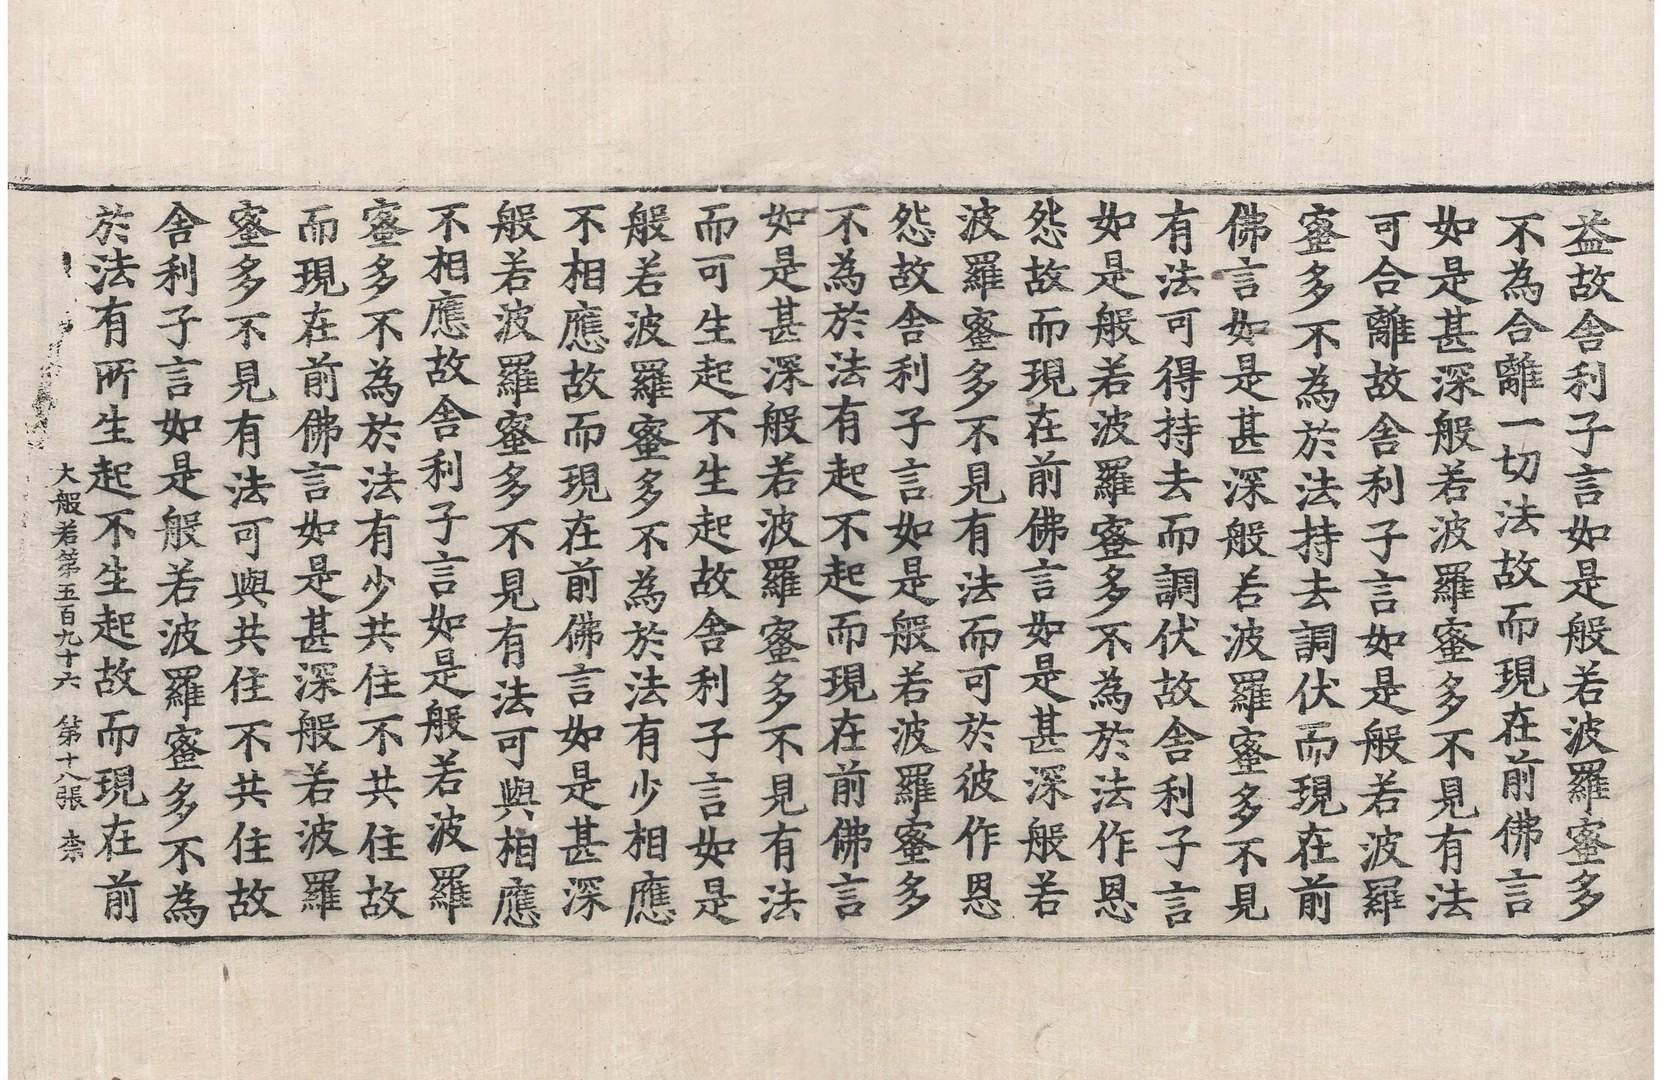 益故舍利子言如是般若波羅蜜多
不為合離一切法故而現在前佛言
如是甚深般若波羅蜜多不見有法
可合離故舍利子言如是般若波羅
蜜多不為於法持去調伏而現在前
佛言如是甚深般若波羅蜜多不見
有法可得持去而調伏故舍利子言
如是般若波羅蜜多不為於法作恩
怨故而現在前佛言如是甚深般若
波羅蜜多不見有法而可於彼作恩
怨故舍利子言如是般若波羅蜜多
不為於法有起不起而現在前佛言
如是甚深般若波羅蜜多不見有法
而可生起不生起故舍利子言如是
般若波羅蜜多不為於法有少相應
不相應故而現在前佛言如是甚深
般若波羅蜜多不見有法可與相應
不相應故舍利子言如是般若波羅
蜜多不為於法有少共住不共住故
而現在前佛言如是甚深般若波羅
蜜多不見有法可與共住不共住故
舍利子言如是般若波羅蜜多不為
於法有所生起不生起故而現在前
大般若第五百九十六 第十八張 柰